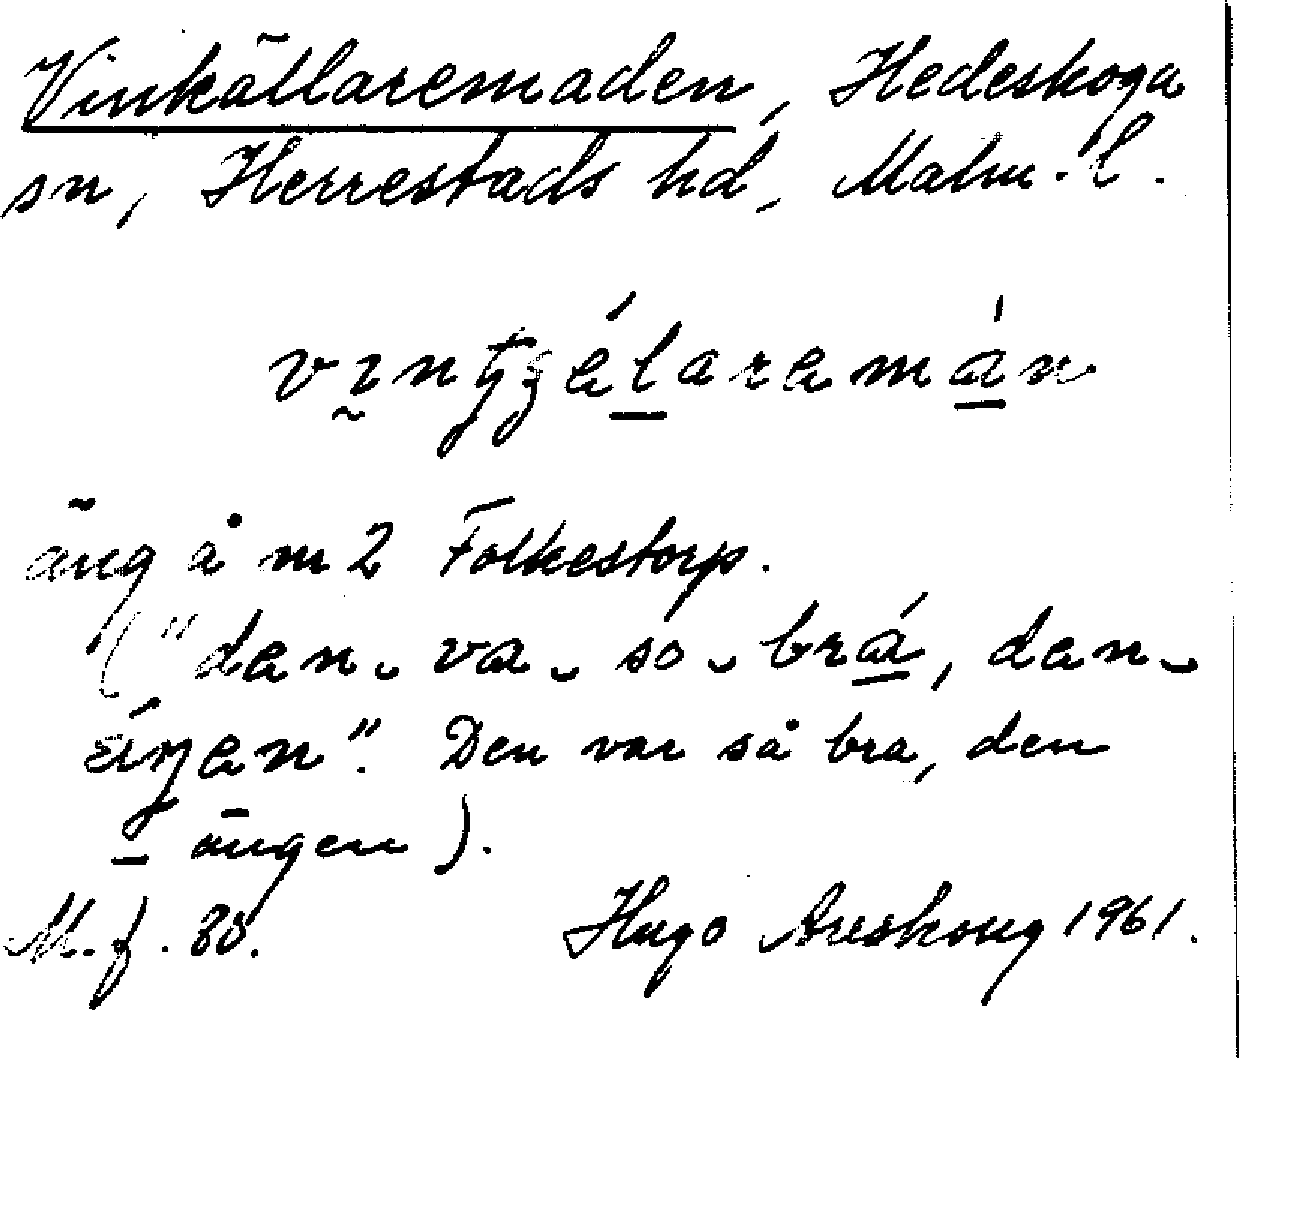 Vinkällaremaden, Hedeskoga
sn, Herrestads hd, Malm. l.
äng å m 2 Folkestorp.
("dan va so brá, dan
Den var så bra, den
ängen).
M. f. 80. Hugo Areskoug 1961.